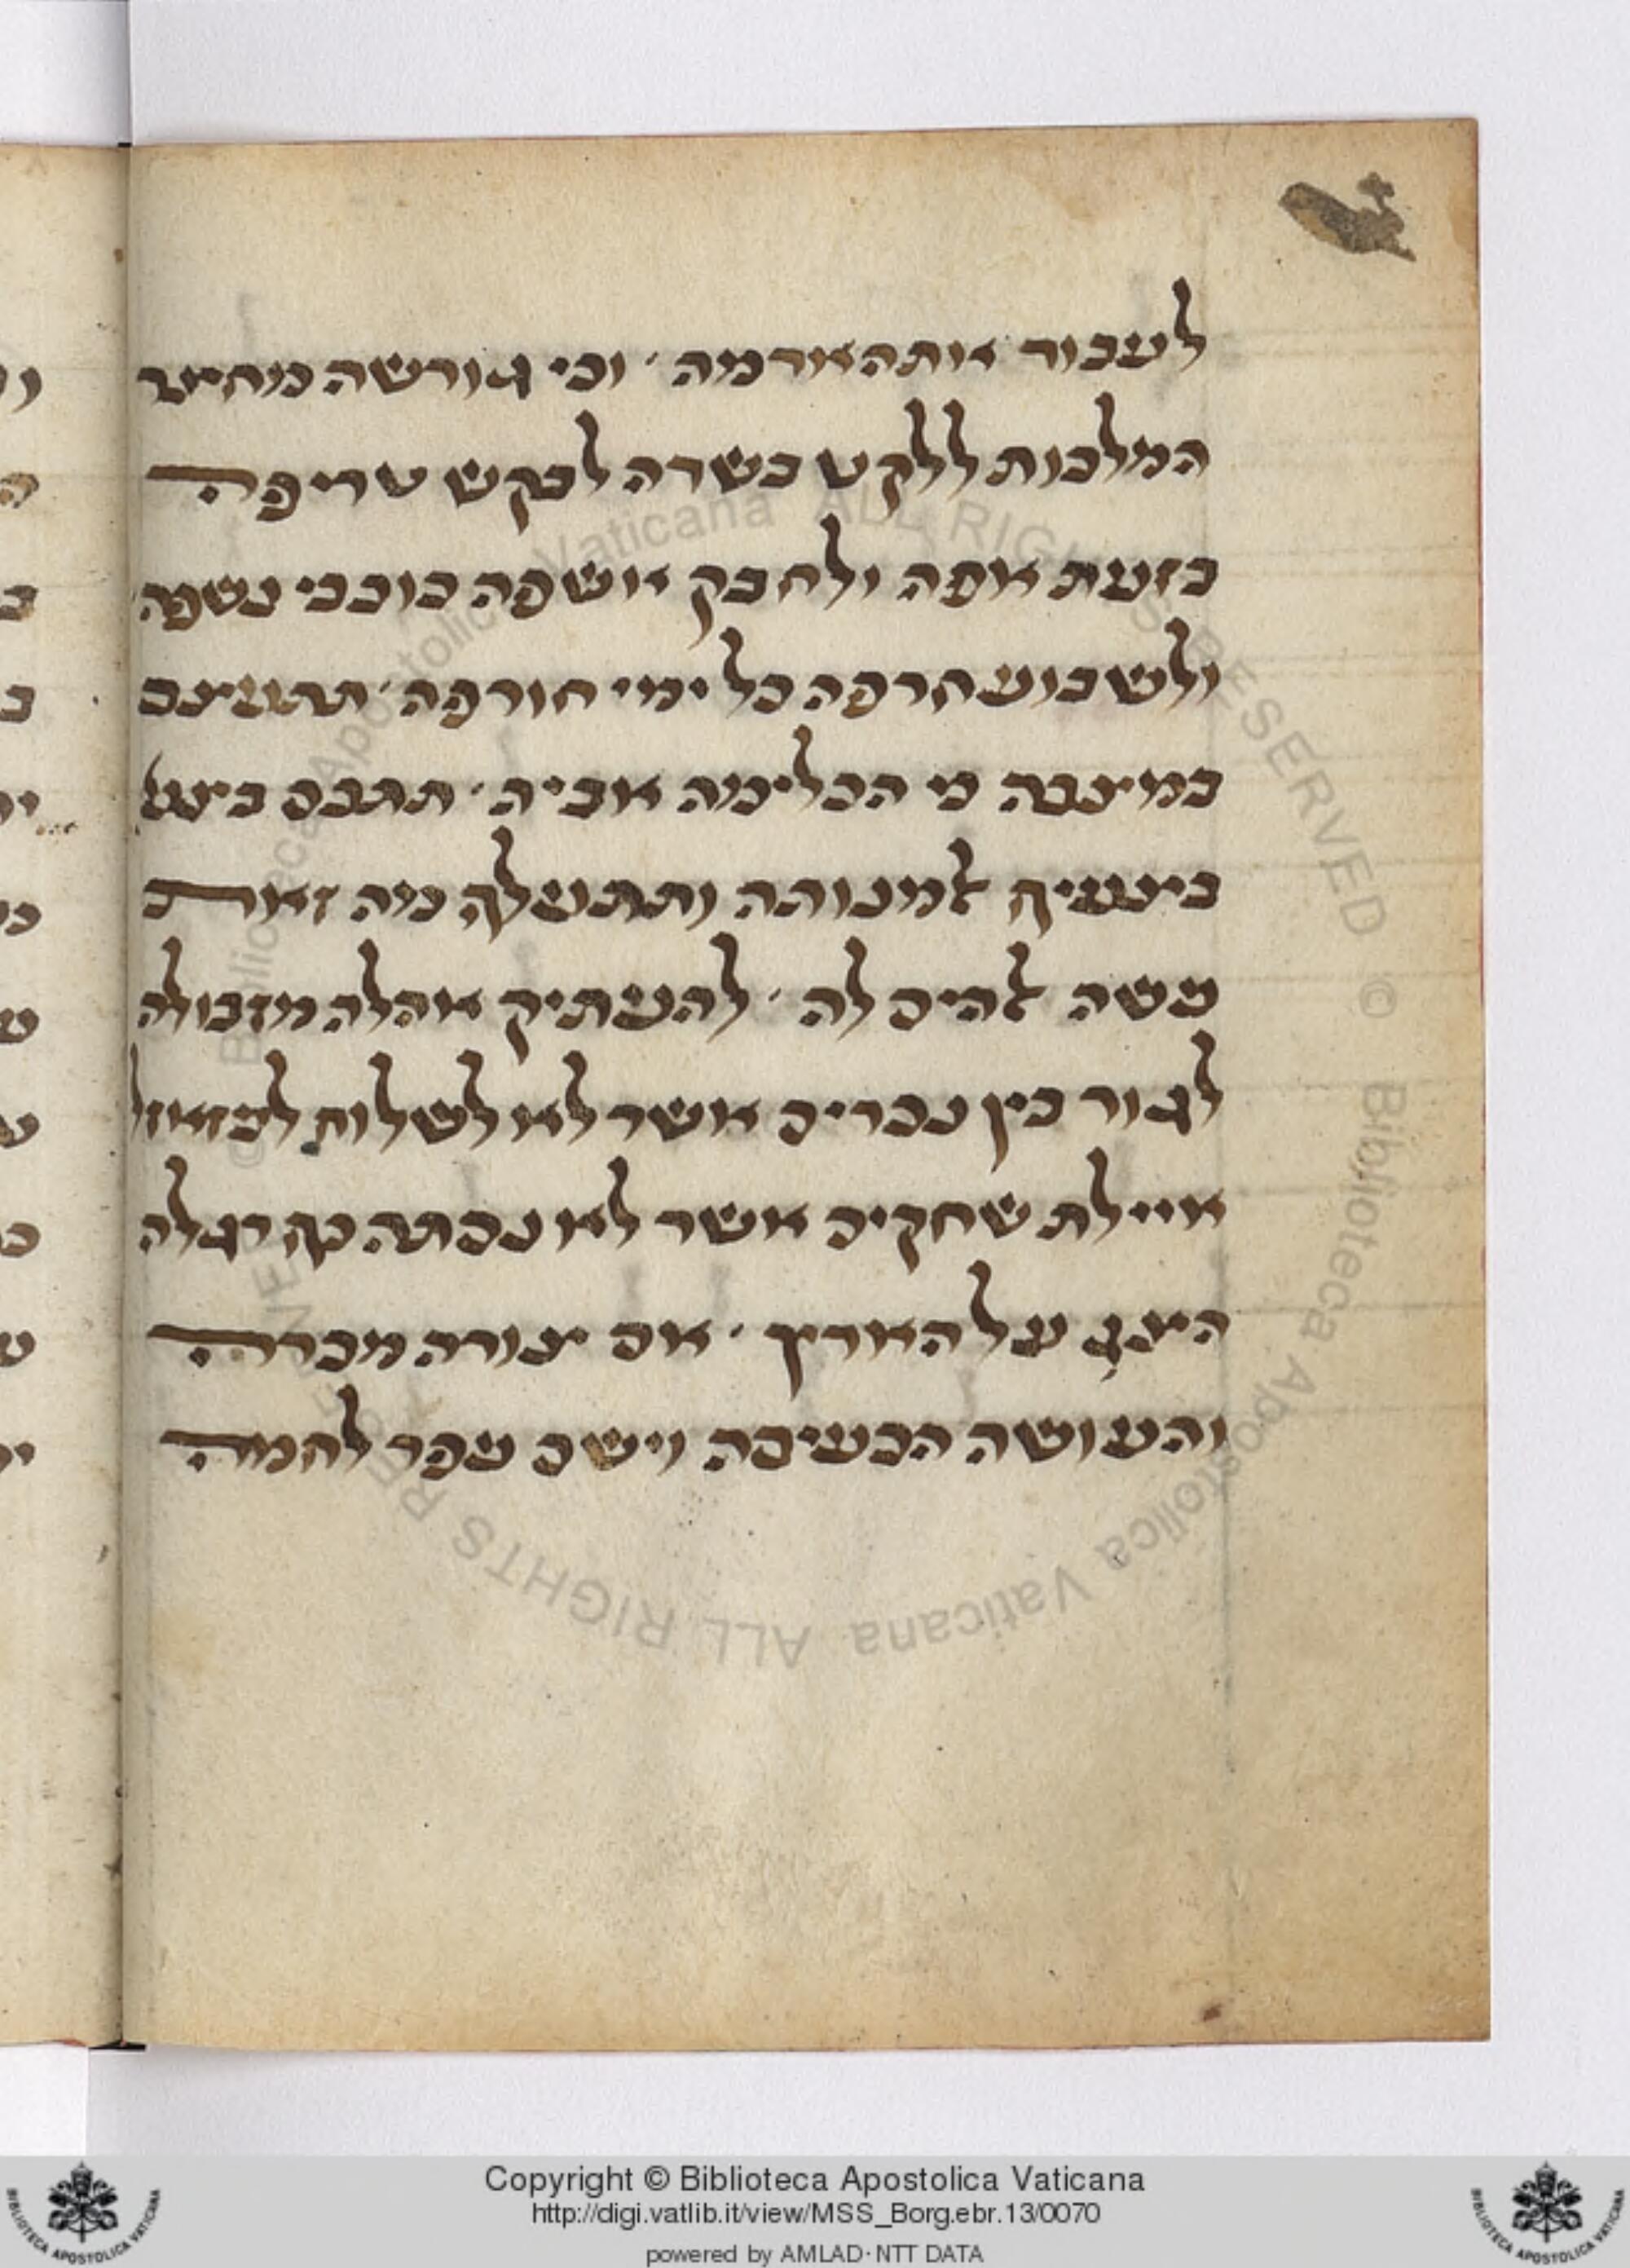 לעבור את האדמה׳ וכי גורשה מחצר
המלכות ללקט בשדה לבקש טריפה
בזעת אפה ולחבק אשפה כוכבי נשפה
ולשבוע חרפה כל ימי חורפה׳
כי הכלימה אביה׳
למנוחה מיה זאת
משה להיס לה׳ להעתיק אהלה מזבולה
לגור בין כפרים אשר לא
איילת שחקים אשר לא נסתה כף רגלה
הצג על הארץ׳ אם צורה מכרה
והעושה הכעיסה וישם עפר לחמה
Copyright © Biblioteca Apostolica Vaticana
http://digi.vatlib.it/view/MSS_Borg.ebr.13/0070
powered by AMLAD·NTT DATA